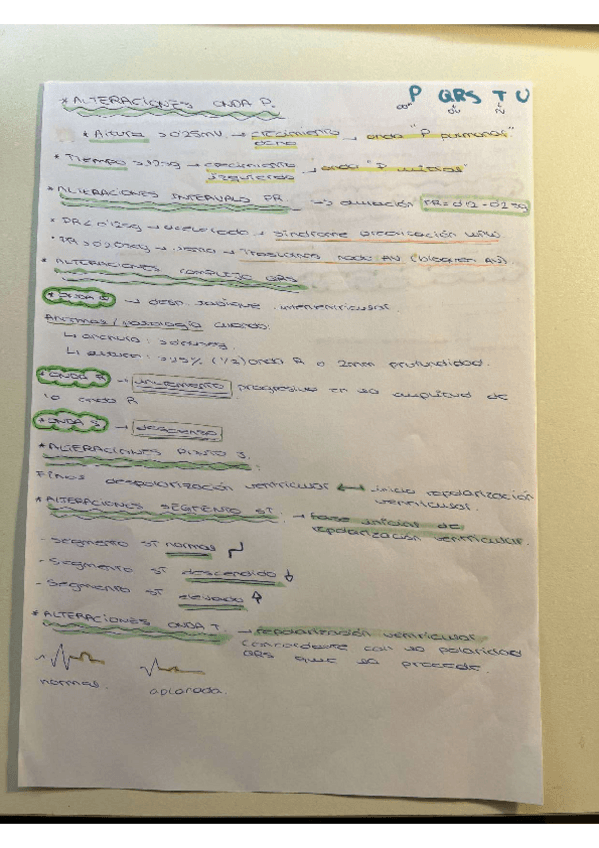 P QRS T U
* ALTERACIONES ONDA P.
* Altura > 0'25mV → crecimiento dcho → onda "P pulmonar"
* Tiempo → crecimiento izquierdo → onda "P mitral"
* ALTERACIONES INTERVALO PR → duración PR = 0'12 - 0'2 sg
* PR < 0'12sg → acelerado → síndrome preexcitación WPW
* PR > 0'20sg → lento → trastornos nodo AV (bloqueo AV).
* ALTERACIONES COMPLEJO QRS
* ONDA Q → desp. tabique interventricular.
Anormas / patología cuando:
↳ anchura:
↳ altura: > 25% onda R o 2mm profundidad.
* ONDA R → incremento progresivo en la amplitud de
la onda R
* ONDA S → descenso
* ALTERACIONES PUNTO J.
Final despolarización ventricular ↔ inicio repolarización
ventricular.
* ALTERACIONES SEGMENTO ST. → fase inicial de
repolarización ventricular.
- Segmento ST normal
- Segmento ST descendido ↓
- Segmento ST elevado ↑
* ALTERACIONES ONDA T → repolarización ventricular
concordante con la polaridad
QRS que la precede.
normal. aplanada.